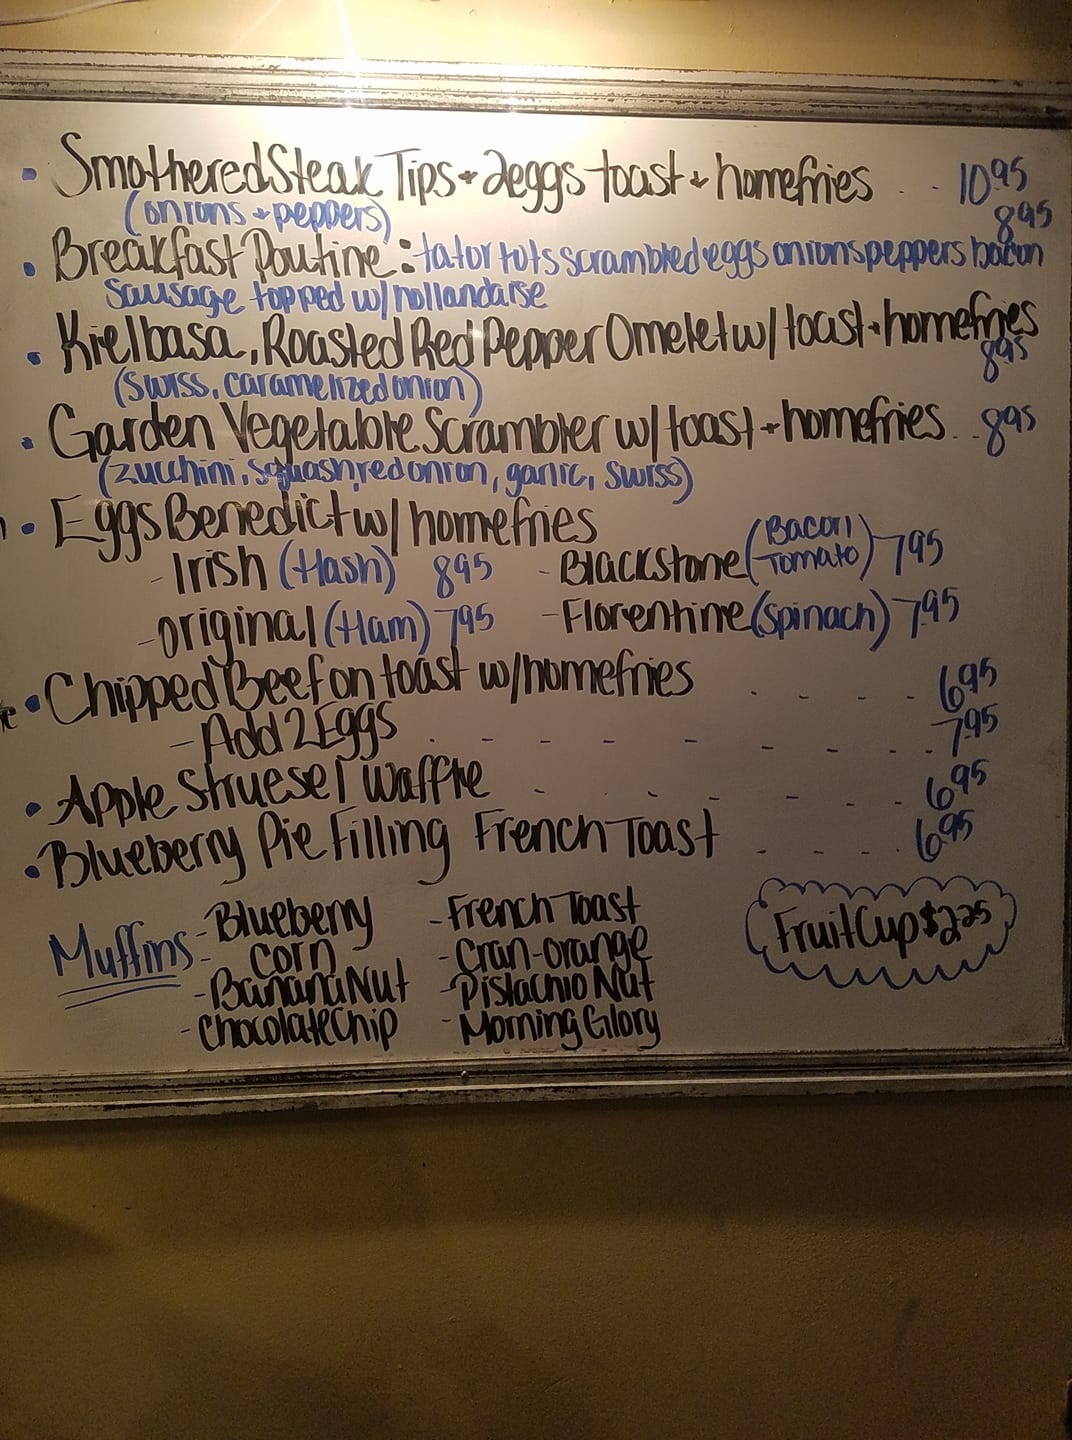 • Smothered Steak Tips + 2eggs toast + homefries . . 10.95
(onions + peppers)
8.95
• Breakfast Poutine: tator tots scrambled eggs onions peppers bacon
sausage topped w/ hollandaise
• Kielbasa, Roasted Red Pepper Omelet w/ toast + homefries
8.95
(Swiss, caramelized onion)
• Garden Vegetable Scrambler w/ toast + homefries . . 8.95
(zucchini, squash, red onion, garlic, Swiss)
• Eggs Benedict w/ homefries
- Irish (Hash) 8.95 - Blackstone (Bacon Tomato) 7.95
- original (Ham) 7.95 - Florentine (Spinach) 7.95
• Chipped Beef on toast w/ homefries . - - - 6.95
- Add 2 Eggs . - - - - - - - . 7.95
• Apple Struesel Waffle - . . - - - . 6.95
• Blueberry Pie Filling French Toast - . - - 6.95
Muffins - Blueberry - French Toast
- Corn - Cran-orange
- Banana Nut - Pistachio Nut
- Chocolate Chip - Morning Glory
Fruit Cup $2.25